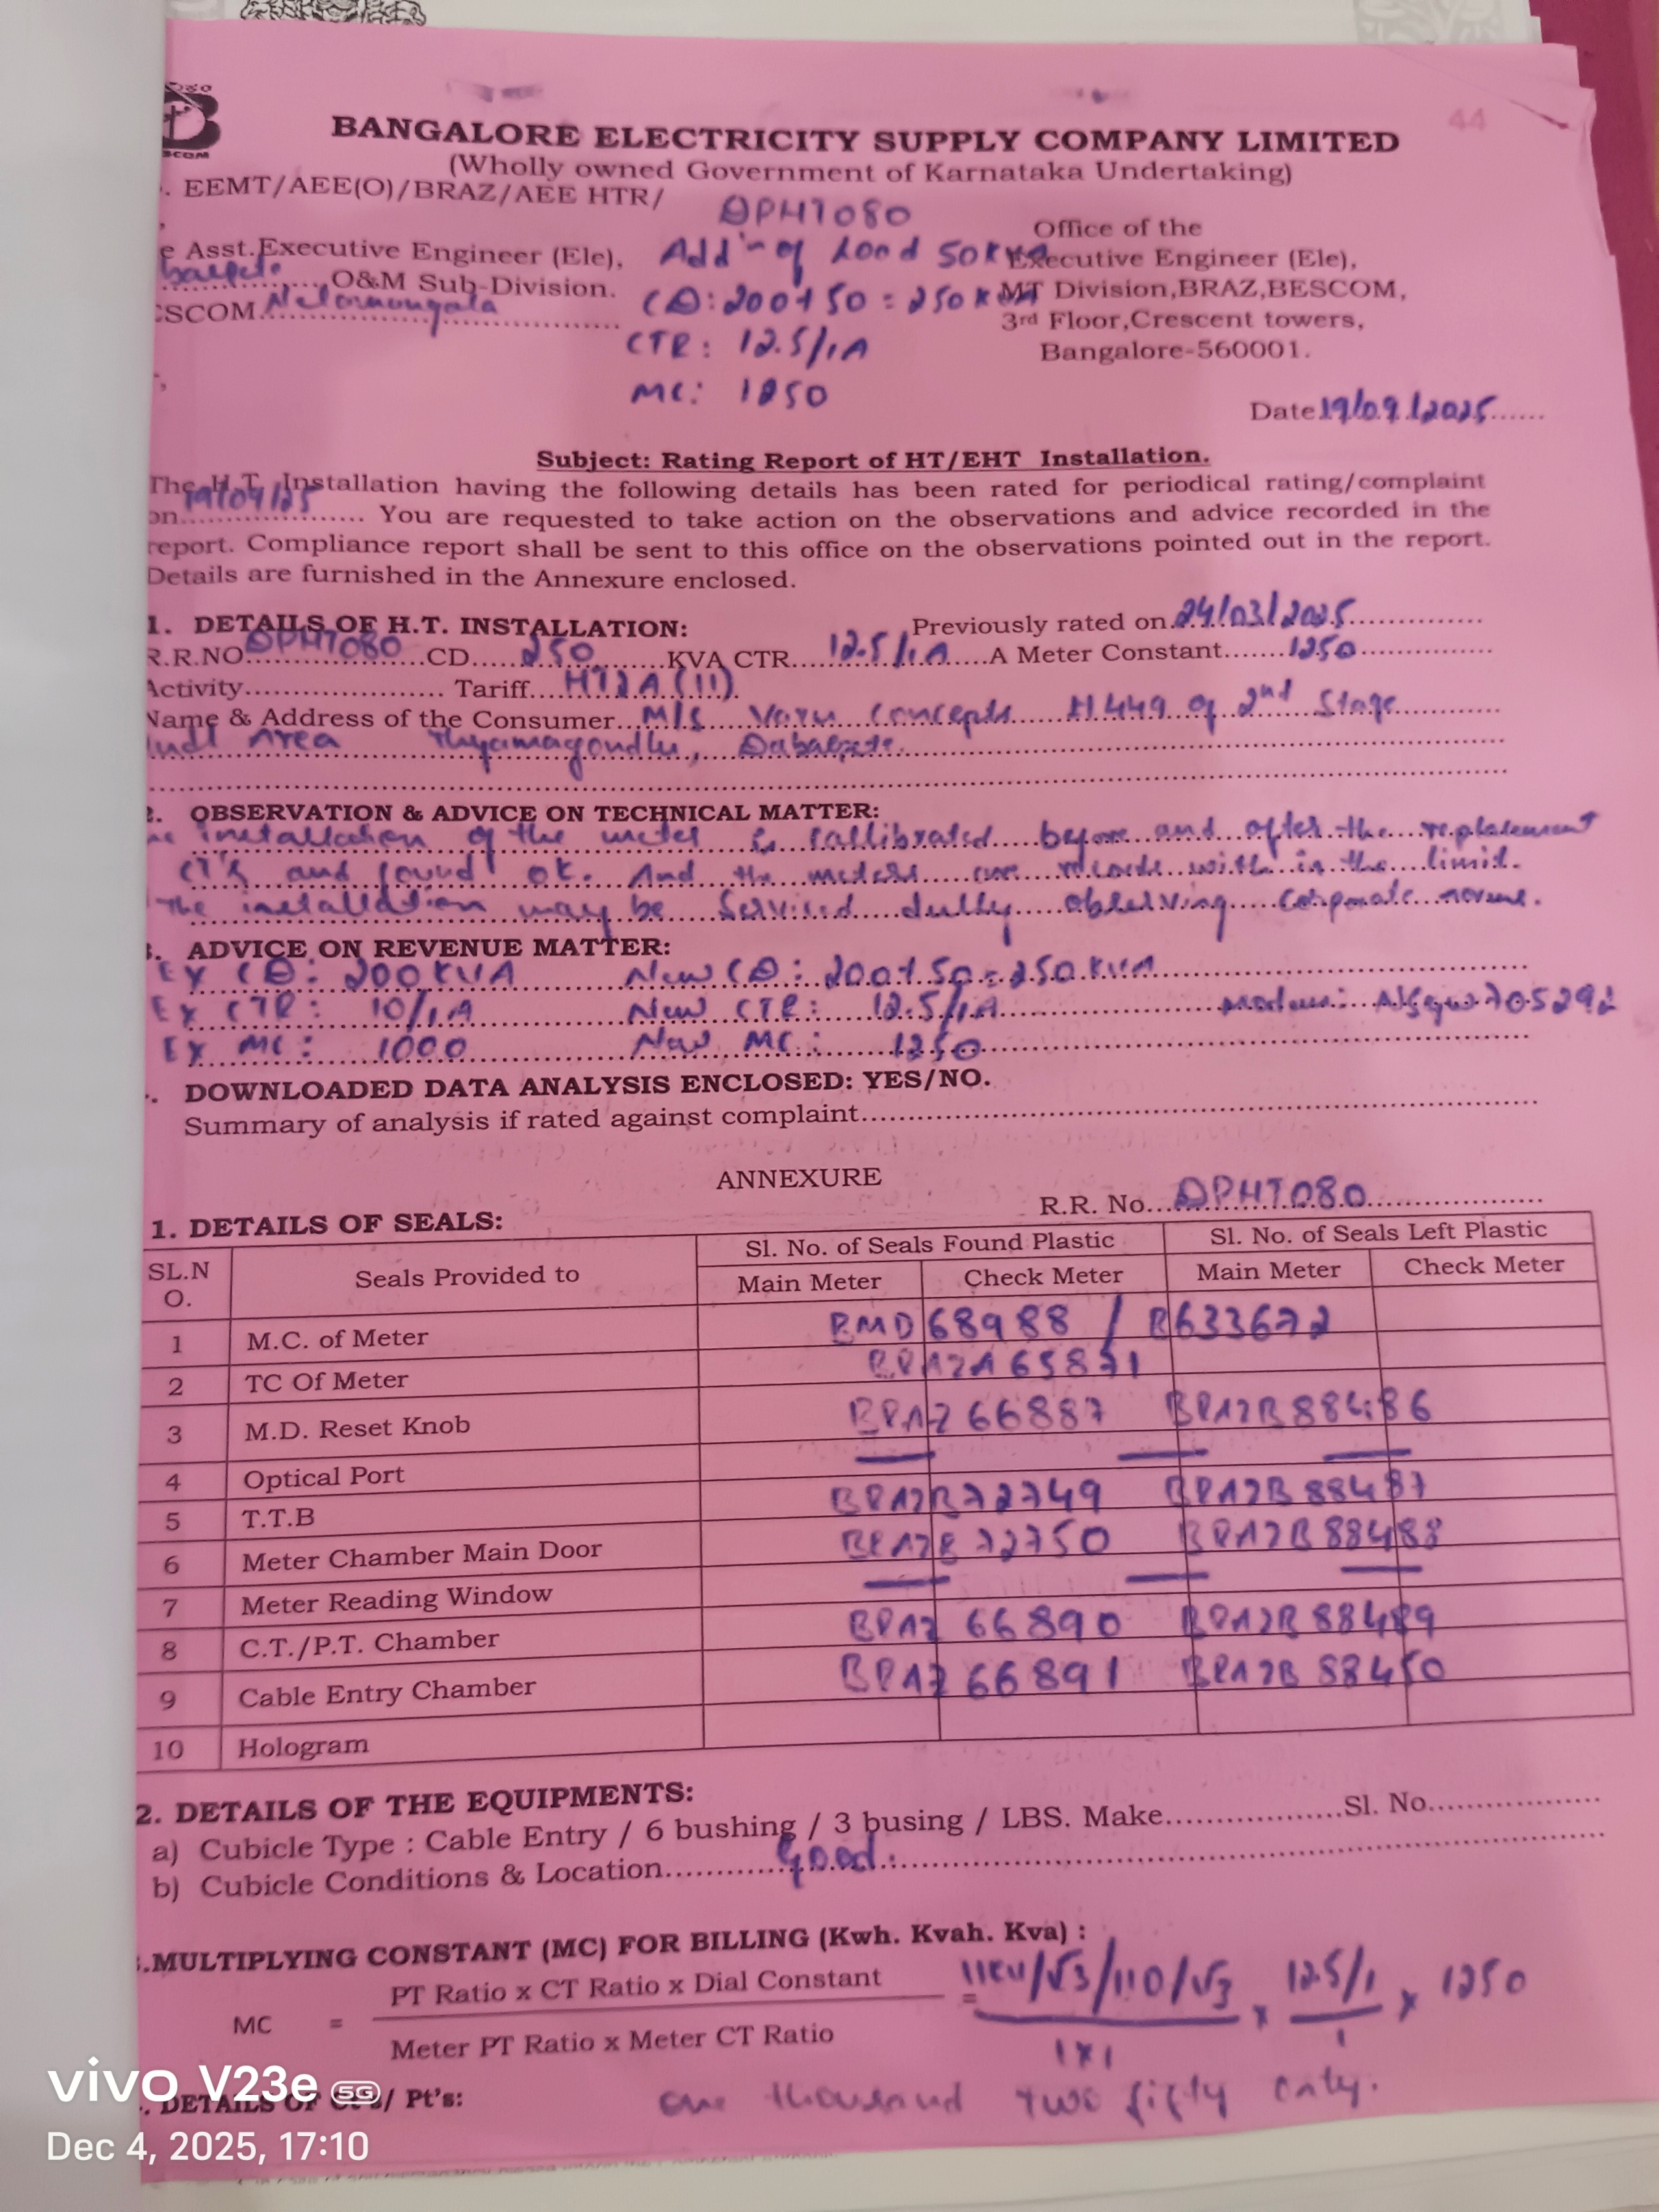 44
BANGALORE ELECTRICITY SUPPLY COMPANY LIMITED
(Wholly owned Government of Karnataka Undertaking)
. EEMT/AEE(O)/BRAZ/AEE HTR/
DPHT080
Office of the
e Asst.Executive Engineer (Ele), Add'n of Load 50KVA Executive Engineer (Ele),
O&M Sub-Division. CD: 200+50 = 250KVA MT Division,BRAZ,BESCOM,
ESCOM Nelamangala 3rd Floor,Crescent towers,
CTR: 12.5/1A Bangalore-560001.
MC: 1250
Date 19/09/2025
Subject: Rating Report of HT/EHT Installation.
The H.T. Installation having the following details has been rated for periodical rating/complaint
on 19/09/25 You are requested to take action on the observations and advice recorded in the
report. Compliance report shall be sent to this office on the observations pointed out in the report.
Details are furnished in the Annexure enclosed.
1. DETAILS OF H.T. INSTALLATION: Previously rated on 24/03/2025
R.R.NO DPHT080 CD 250 KVA CTR 12.5/1A A Meter Constant 1250
Activity Tariff HT2A(II)
Name & Address of the Consumer M/S Varu Concepts H449 of 2nd Stage
Indl Area Thyamagondlu, Dabaspete.
2. OBSERVATION & ADVICE ON TECHNICAL MATTER:
installation of the meter is callibrated before and after the replacement
CT's and found ok. And the meters are records with in the limit.
The installation may be Serviced dully observing Corporate norms.
3. ADVICE ON REVENUE MATTER:
EX CD: 200KVA New CD: 200+50=250KVA
EX CTR: 10/1A New CTR: 12.5/1A Modem:
EX MC: 1000 New MC: 1250
. DOWNLOADED DATA ANALYSIS ENCLOSED: YES/NO.
Summary of analysis if rated against complaint
ANNEXURE
R.R. No. DPHT080
1. DETAILS OF SEALS:
SL.N O. Seals Provided to Sl. No. of Seals Found Plastic Sl. No. of Seals Left Plastic
Main Meter Check Meter Main Meter Check Meter
1 M.C. of Meter BMD68988 / B633672
2 TC Of Meter BRAZA65871
3 M.D. Reset Knob BRAZ 66887 BRAZB88486
4 Optical Port
5 T.T.B BRAZB72749 BRAZB88487
6 Meter Chamber Main Door BRAZB72750 BRAZB88488
7 Meter Reading Window
8 C.T./P.T. Chamber BRAZ 66890 BRAZB88489
9 Cable Entry Chamber BRAZ 66891 BRAZB88450
10 Hologram
2. DETAILS OF THE EQUIPMENTS:
a) Cubicle Type : Cable Entry / 6 bushing / 3 busing / LBS. Make Sl. No.
b) Cubicle Conditions & Location Good.
.MULTIPLYING CONSTANT (MC) FOR BILLING (Kwh. Kvah. Kva) :
PT Ratio x CT Ratio x Dial Constant = 11KV/√3/110/√3 x 12.5/1 x 1250
MC =
Meter PT Ratio x Meter CT Ratio 1x1 1
. DETAILS OF / Pt's: One thousand two fifty only.
vivo V23e 5G
Dec 4, 2025, 17:10